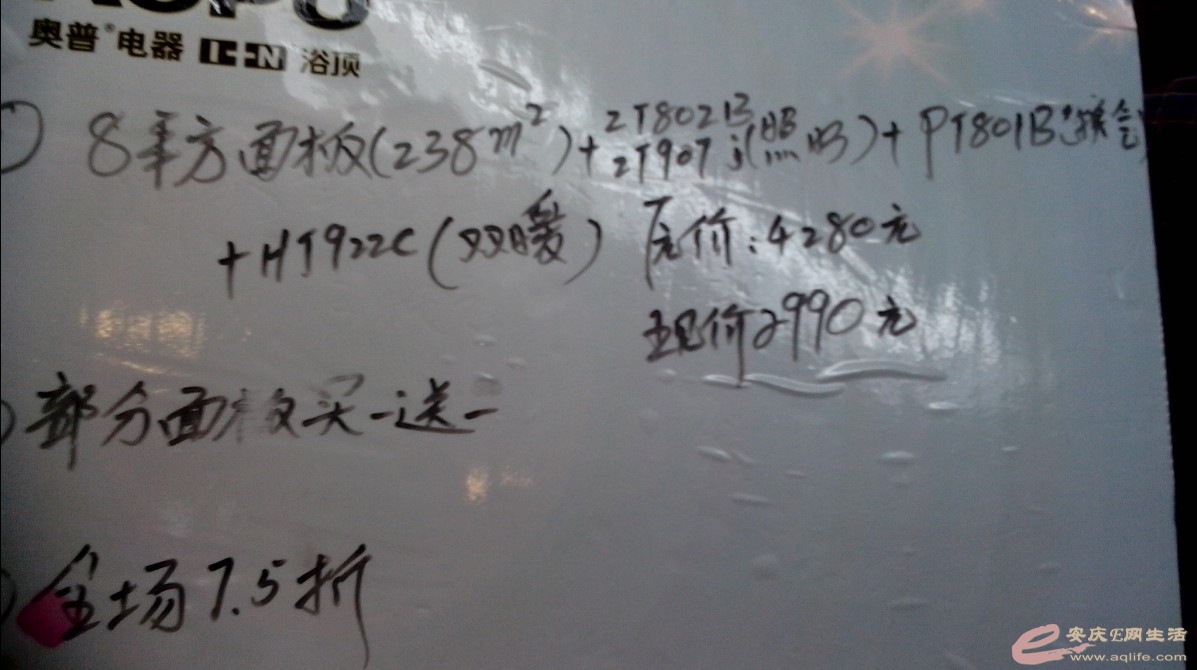 奥普®电器 浴顶
8平方面板(238m²)+2T802B 2T907j(照明)+PT801B(换气)
+HT922C(双暖) 原价:4280元
现价2990元
部分面板买一送一
全场7.5折
安庆E网生活
www.aqlife.com